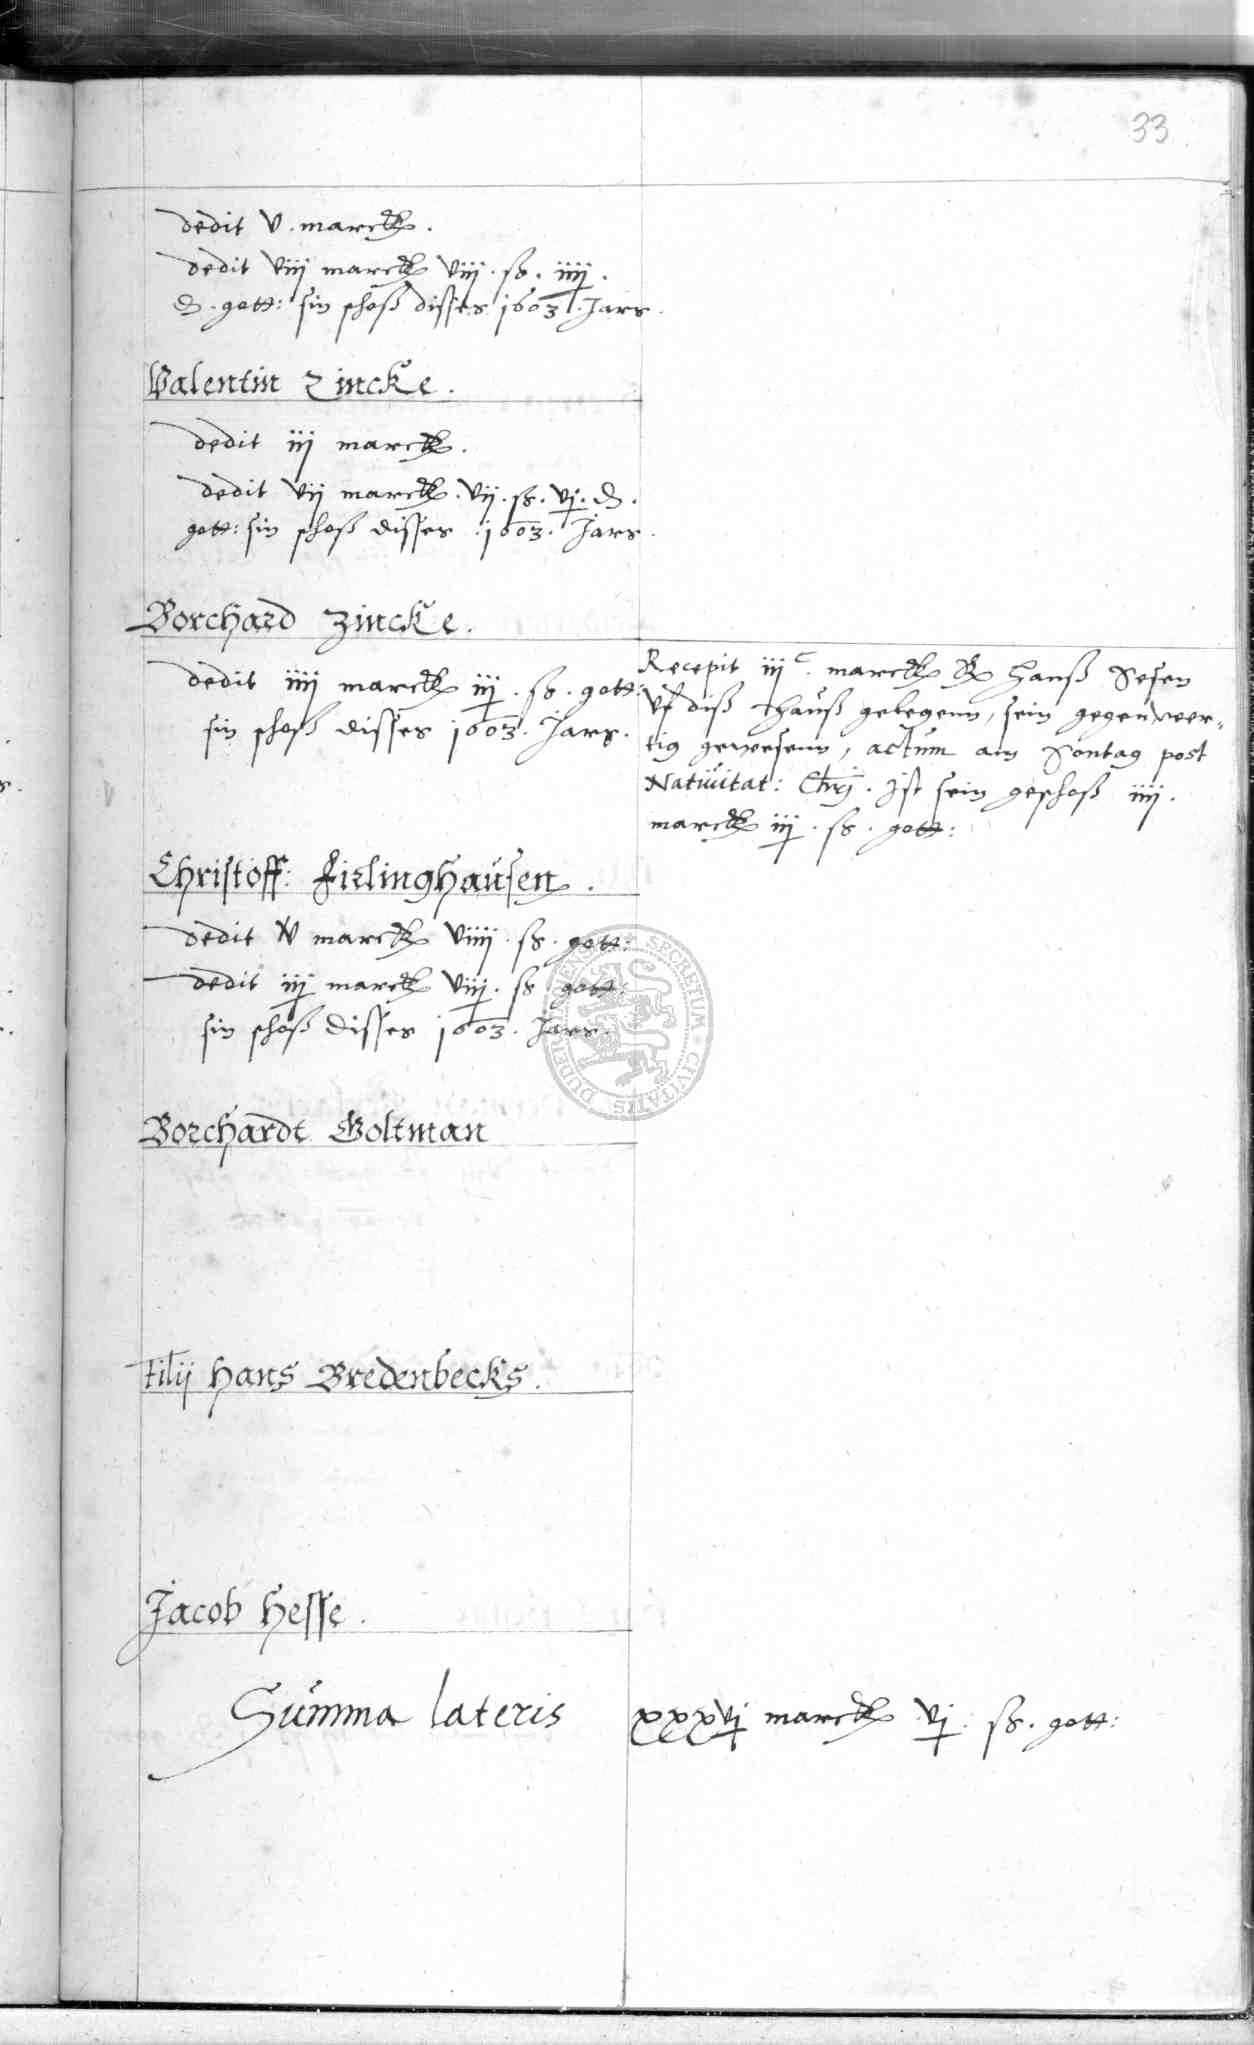 33
dedit v. marck.
dedit viii marck viii. ß. iiij.
d. gott: sin schoß disses 1603 Jars.
Valentin Zincke.
dedit iij marck.
dedit vij marck. vij. ß. vj. d.
gott: sin schoß disses .1603. Jars.
Borchard Zincke.
dedit iiij marck iij. ß. gott:
sin schoß disses 1603. Jars.
Recepit iij c. marck Hanß Sesen
uf diß hauß gelegenn, sein gegenwer-
tig gewesenn, actum am Sontag post
Nativitat: Chrj. Ist sein geschoß iiij.
marck iij. ß. gott:
Christoff: Fizlinghausen.
dedit v marck viiij. ß. gott:
dedit iij marck viij. ß. gott:
sin schoß disses 1603. Jars.
SECRETUM CIVITATIS DUDER
Borchardt Woltman
filij Hans Bredenbecks.
Jacob Hesse.
Summa lateris xxxvj marck vj. ß. gott: